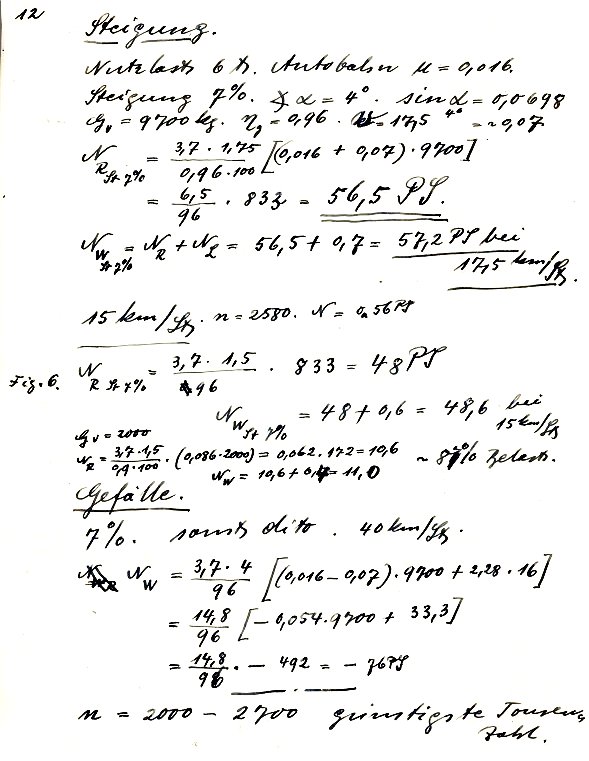 12
Steigung.
Nutzlast 6 t. Autobahn μ = 0,016.
Steigung 7%. ∢ α = 4°. sin α = 0,0698
Gv = 9700 kg. ηg = 0,96. V = 17,5 4° = ~0,07
N R St 7% = 3,7 · 1,75 / 0,96 · 100 [(0,016 + 0,07) · 9700]
= 6,5 / 96 · 833 = 56,5 PS.
N W St 7% = N R + N L = 56,5 + 0,7 = 57,2 PS bei
17,5 km/St.
15 km/St. n = 2580. N = 56 PS
Fig. 6. N R St 7% = 3,7 · 1,5 / 96 · 833 = 48 PS
N W St 7% = 48 + 0,6 = 48,6 bei
15 km/St
Gv = 2000
N R = 3,7 · 1,5 / 0,9 · 100 · (0,086 · 2000) = 0,062 · 172 = 10,6
N W = 10,6 + 0,4 = 11,0
Gefälle.
7%. sonst dito. 40 km/St.
N W = 3,7 · 4 / 96 [(0,016 – 0,07) · 9700 + 2,28 · 16]
= 14,8 / 96 [– 0,054 · 9700 + 33,3]
= 14,8 / 96 · – 492 = – 76 PS
n = 2000 – 2700 günstigste Touren-
zahl.